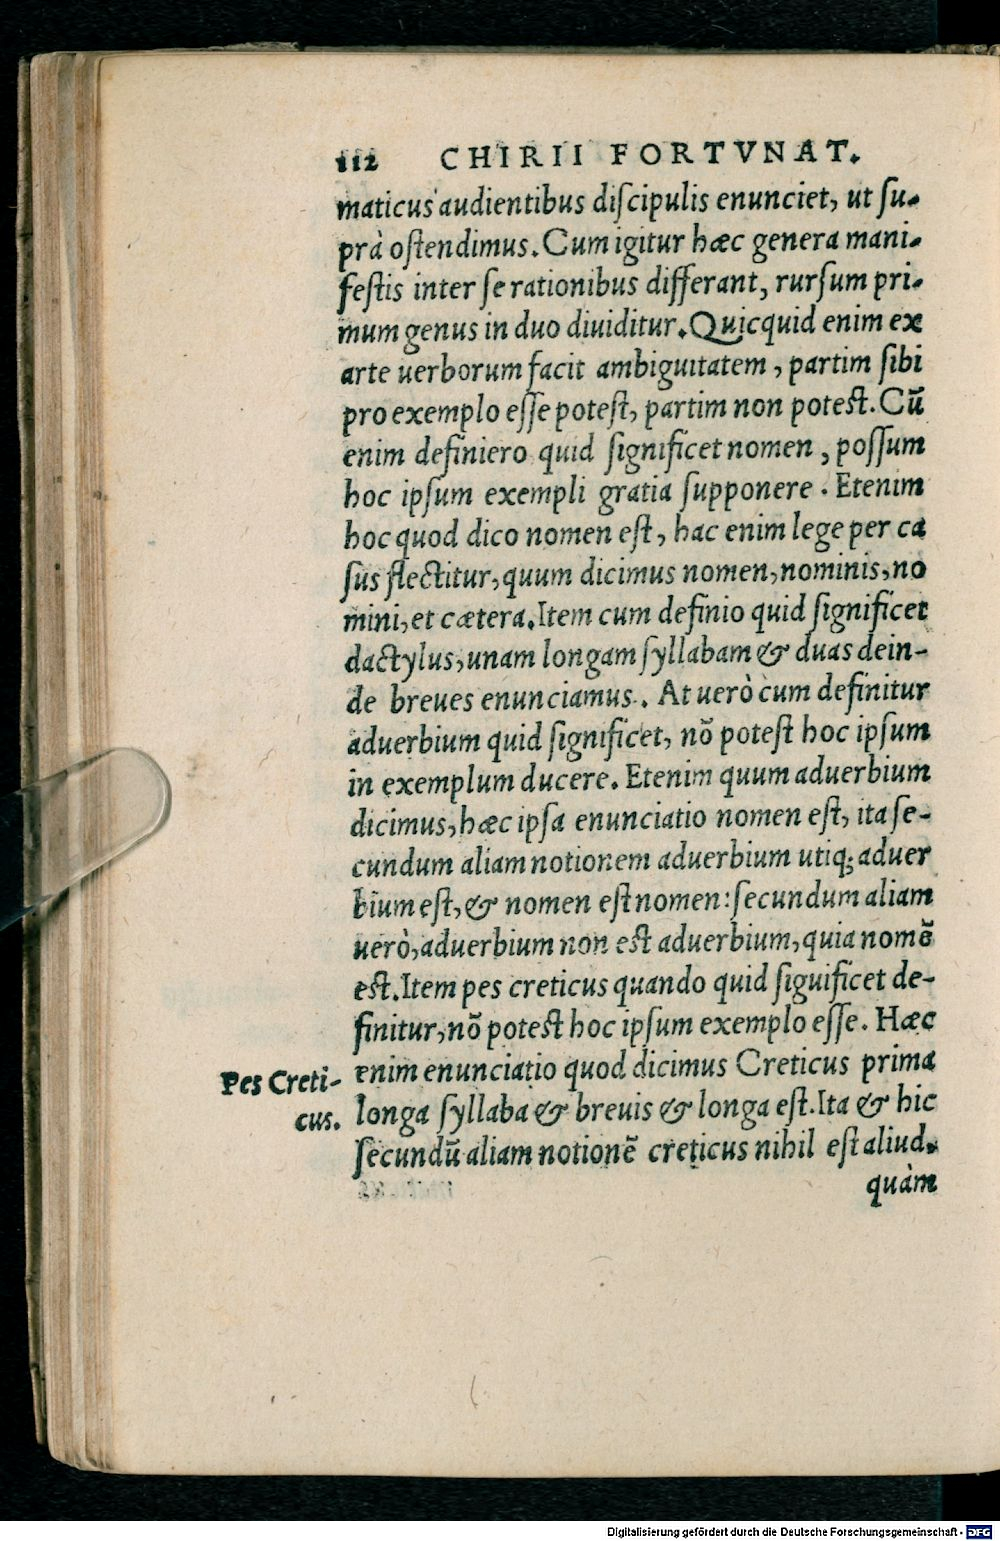 112 CHIRII FORTVNAT.
maticus audientibus diſcipulis enunciet, ut ſu-
prà oſtendimus. Cum igitur hæc genera mani-
feſtis inter ſe rationibus differant, rurſum pri-
mum genus in duo diuiditur. Quicquid enim ex
arte uerborum facit ambiguitatem, partim ſibi
pro exemplo eſſe poteſt, partim non poteſt. Cū
enim definiero quid ſignificet nomen, poſſum
hoc ipſum exempli gratia ſupponere. Etenim
hoc quod dico nomen eſt, hac enim lege per ca
ſus flectitur, quum dicimus nomen, nominis, no
mini, et cætera. Item cum definio quid ſignificet
dactylus, unam longam ſyllabam & duas dein-
de breues enunciamus. At uerò cum definitur
aduerbium quid ſignificet, nō poteſt hoc ipſum
in exemplum ducere. Etenim quum aduerbium
dicimus, hæc ipſa enunciatio nomen eſt, ita ſe-
cundum aliam notionem aduerbium utiq; aduer
bium eſt, & nomen eſt nomen: ſecundum aliam
uerò, aduerbium non eſt aduerbium, quia nomē
eſt. Item pes creticus quando quid ſiguificet de-
finitur, nō poteſt hoc ipſum exemplo eſſe. Hæc
enim enunciatio quod dicimus Creticus prima
longa ſyllaba & breuis & longa eſt. Ita & hic
ſecundū aliam notionē creticus nihil eſt aliud,
quàm
Pes Creti-
cus.
Digitalisierung gefördert durch die Deutsche Forschungsgemeinschaft - DFG